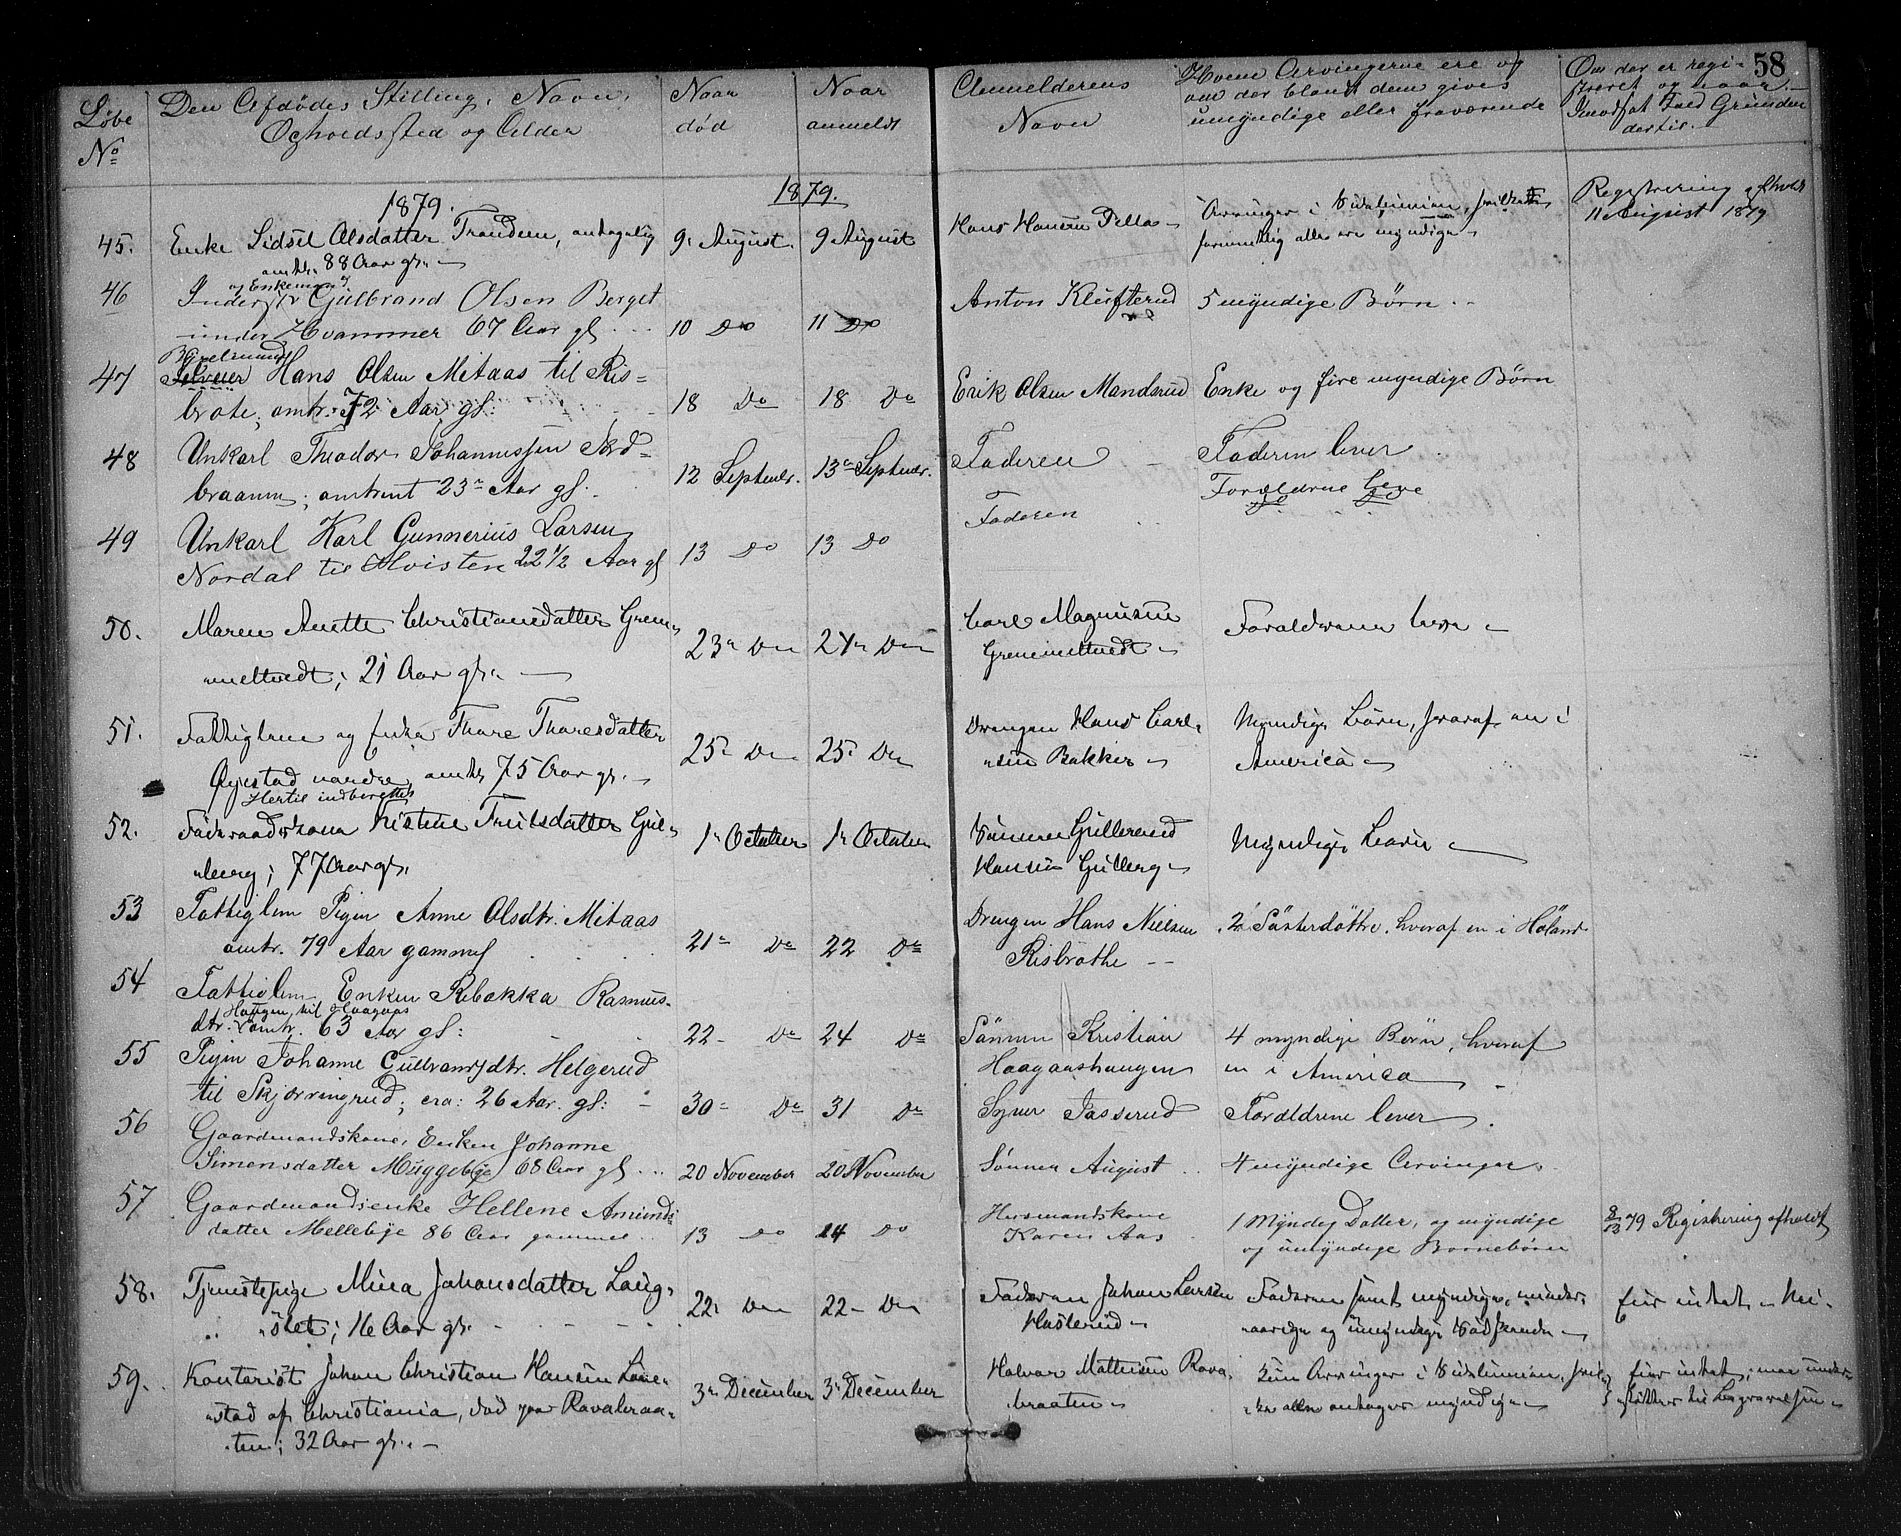 58
Løbe
No
Den Afdødes Stilling, Navn,
Opholdssted og Alder
Naar
død
Naar
anmeldt
Anmelderens
Navn
Hvem Arvingerne ere og
om der blandt dem gives
umyndige eller fraværende
Om der er regi-
streret og naar.
Imodsat Fald Grunden
dertil.
1879.
1879.
45. Enke Sidsel Olsdatter Trandem,
amtr. 88 Aar gl.
9. August. 9 August
Hans Hansen
Arvinger i
alle ere myndige
Registrering afholdt
11 August 1879
46 og Enkemand
Inderst Gulbrand Olsen Berget
under Hvammer 67 Aar gl.
10 Do 11 Do
Anton Klufterud
5 myndige Børn
47 Hans Olsen Mitaas til Ris=
brote, omtr. 72 Aar gl:
18 Do 18 Do
Erik Olsen Mandsrud
Enke og fire myndige Børn
48 Unkarl Theodor Johannessen
braanen, omtrent 23 Aar gl.
12 Septembr. 13 Septembr.
Faderen
Faderen lever
49 Unkarl Karl Gunnerius Larsen
Nordal til Hvisten 22 1/2 Aar gl
13 Do 13 Do
Faderen
Forældrene Leve
50. Maren Anette Christiansdatter Grem-
meltvedt; 21 Aar gl.
23 Do 24 Do
Carl Magnusen
Gremmeltvedt
Forældrene leve
51. Fattiglem og Enke Thore Thoresdatter
nordre, amtr. 75 Aar gl.
25 Do 25 Do
Drengen Hans Carl-
sen Bakken
Myndige Børn, hvoraf en i
America
Hertil indberettet
52. Føderaadskone Kistine Truelsdatter Gul-
berg; 77 Aar gl.
1 October 1 October
Sønnen Gulbrand
Hansen Gulberg
Myndige Børn
53 Fattiglem Pigen Anne Olsdtr. Mitaas
omtr. 79 Aar gammel
21 Do 22 Do
Drengen Hans Nielsen
Risbrøthe
2 Søsterdøttre, hveraf en i Høland
54 Fattiglem Enken Rebekka Rasmus-
Haugen til Haagaas
dtr. omtr. 63 Aar gl:
22 Do 24 Do
Sønnen Kristian
Haagaashaugen
4 myndige Børn, hvoraf
en i America
55 Pigen Johanne Gulbrandsdtr. Helgerud
til Skjørringrud, cra: 26 Aar. gl:
30 Do 31 Do
Syver Tasserud
Forældrene lever
56 Gaardmandskone, Enken Johanne
Simensdatter Muggebye 68 Aar gl
20 November 20 November
Sønnen August
4 myndige Arvinger
57 Gaardmandsenke Hellene Amunds
datter Mellebye 86 Aar gammel
13 Do 14 Do
Husmandskone
Karen Aas
1 Myndig Datter, og myndige
og umyndige Bornebørn
79 Registrering afholdt
58. Tjenestepige Mina Johansdatter Laug-
stet; 16 Aar gl.
22. Do 22 Do
Faderen Johan Larsen
Haslerud
Faderen samt myndige, minder-
aarige og umyndige Sødskende
Eier intet
59. Kontorist Johan Christian Hansen
stad af Christiania, død paa Ravabraa-
ten; 32 Aar gl.
3 December 3 December
Halvor Mathisen Rava-
braaten
Kun Arvinger i
alle antages myndige
Eier intet,
til Begravelsen